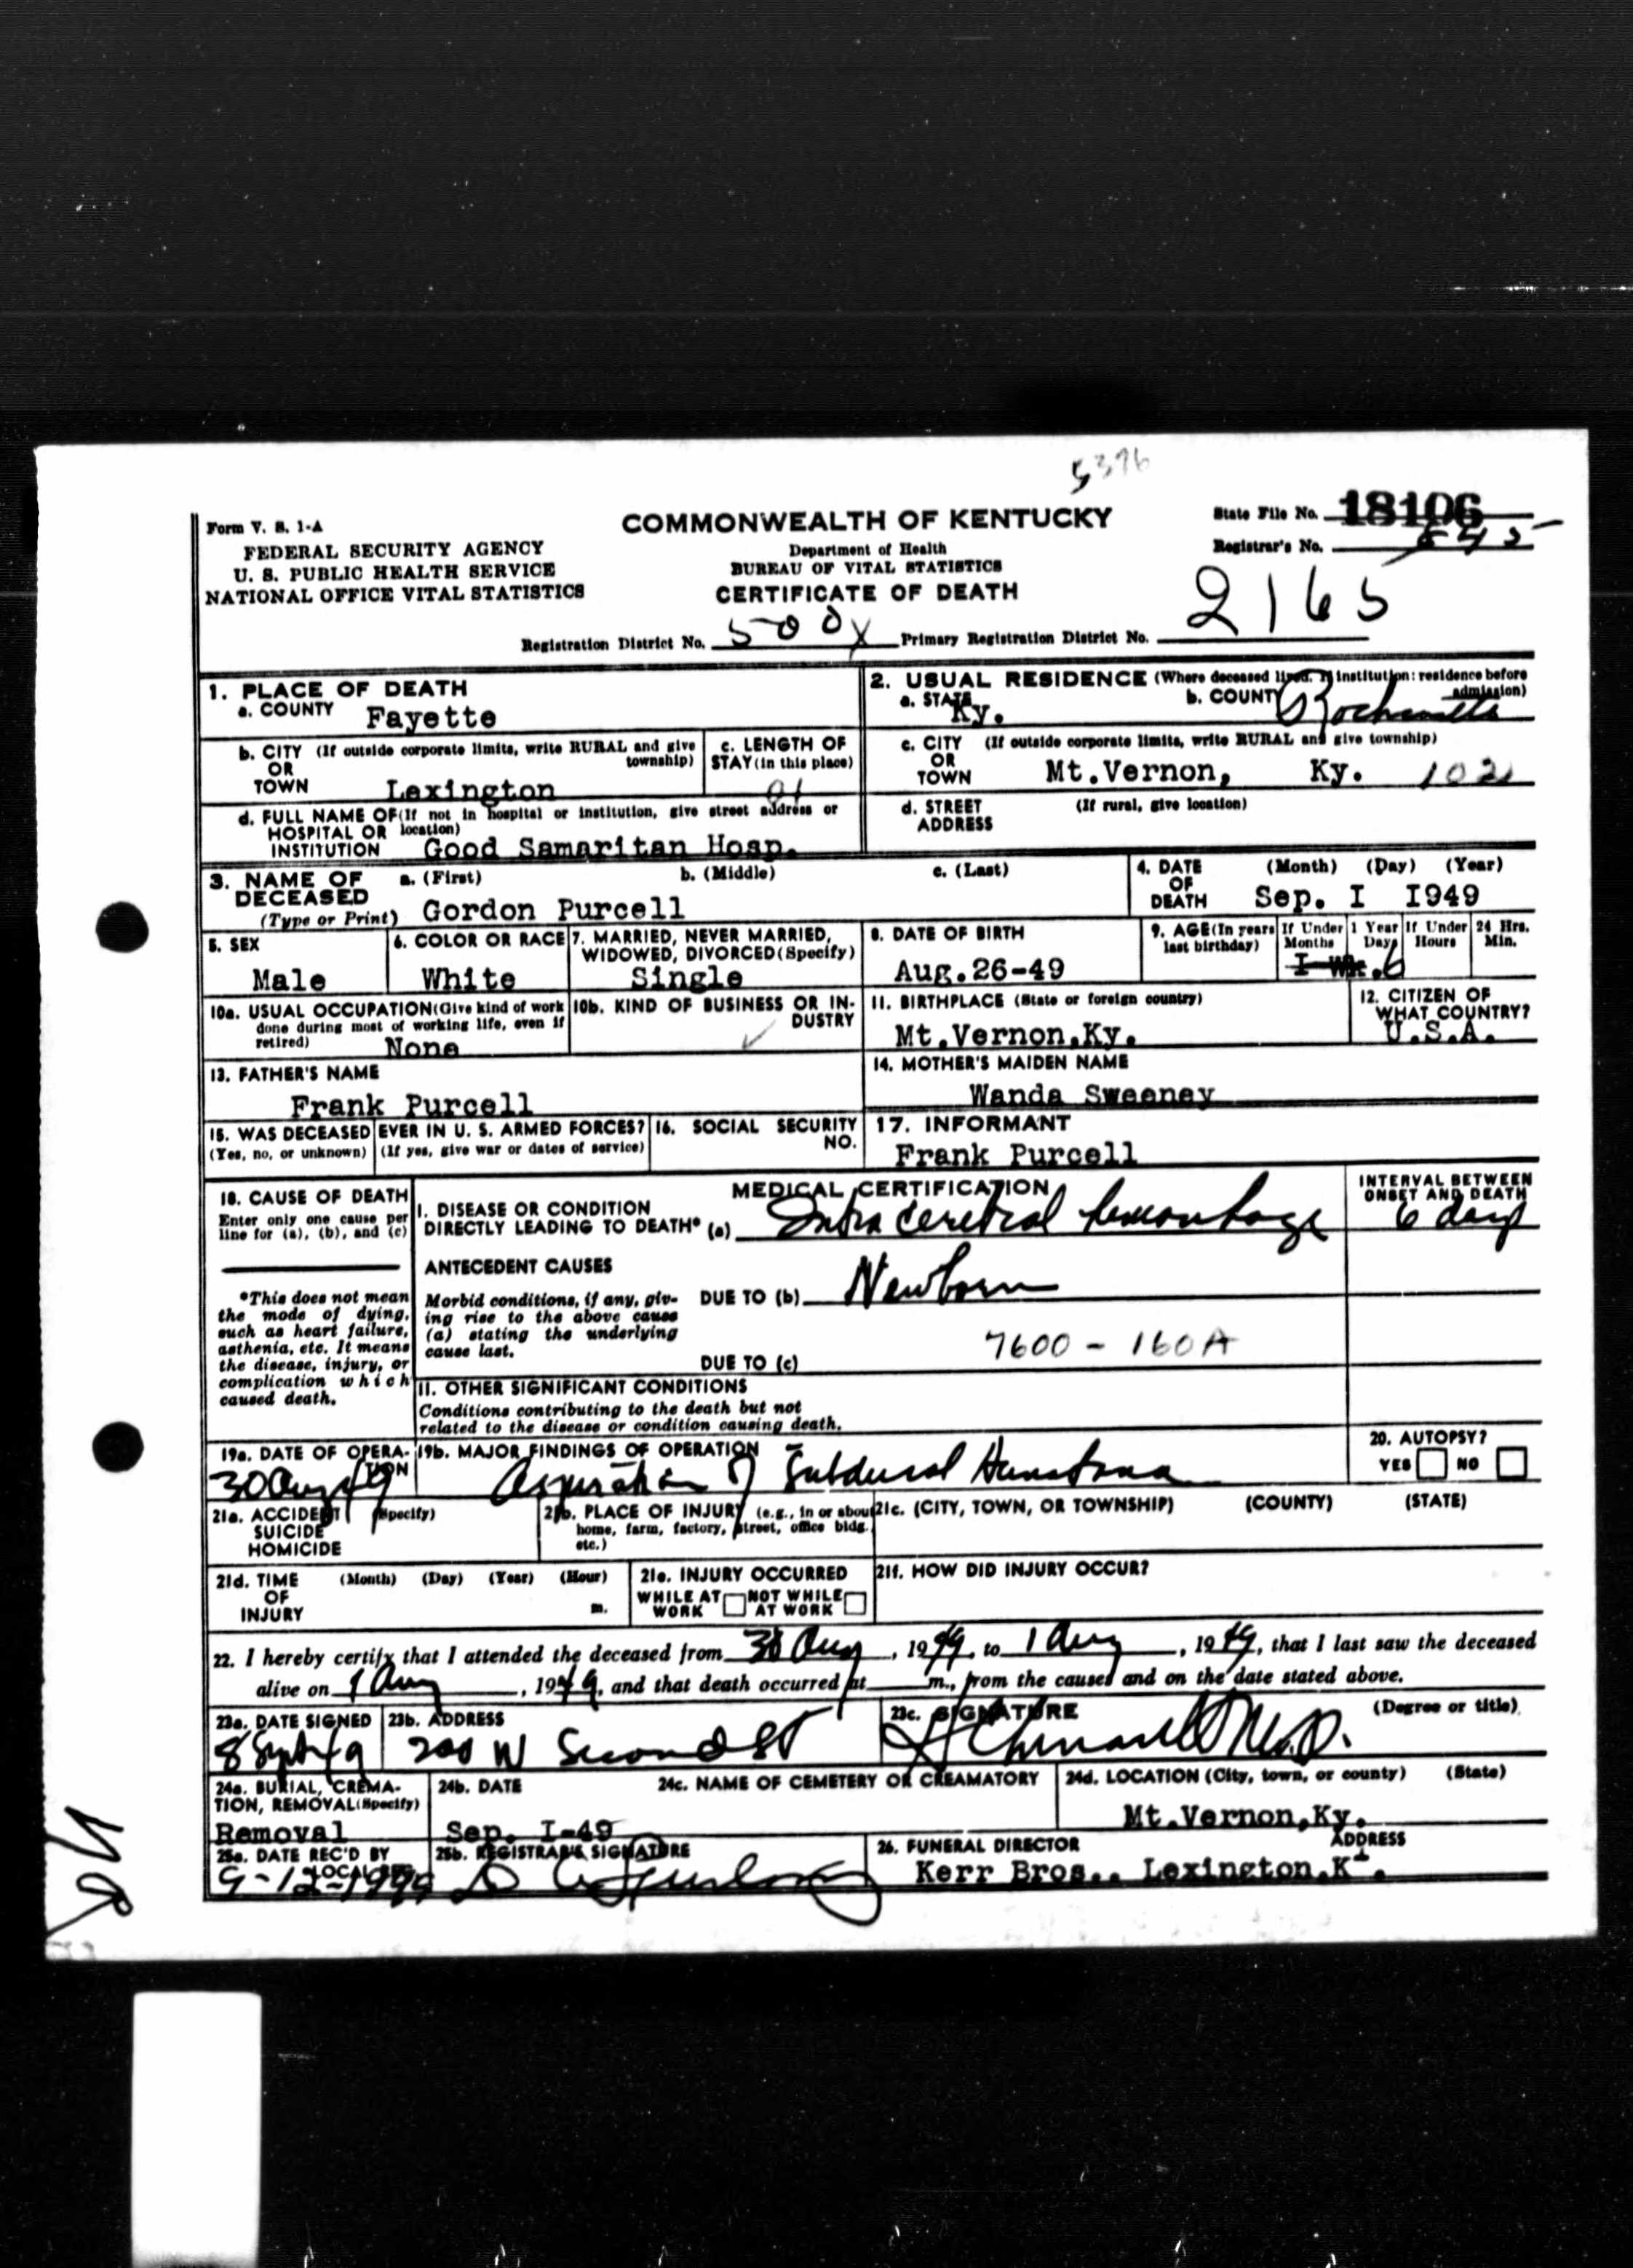 5396
Form V. S. 1-A
COMMONWEALTH OF KENTUCKY
State File No. 18106
FEDERAL SECURITY AGENCY
Department of Health
Registrar's No.
U. S. PUBLIC HEALTH SERVICE
BUREAU OF VITAL STATISTICS
NATIONAL OFFICE VITAL STATISTICS
CERTIFICATE OF DEATH
2165
Registration District No. 500X Primary Registration District No.
1. PLACE OF DEATH
a. COUNTY Fayette
2. USUAL RESIDENCE (Where deceased lived. If institution: residence before admission)
a. STATE Ky. b. COUNTY
b. CITY (If outside corporate limits, write RURAL and give township)
OR
TOWN Lexington
c. LENGTH OF
STAY (in this place)
c. CITY (If outside corporate limits, write RURAL and give township)
OR
TOWN Mt.Vernon, Ky. 102
d. FULL NAME OF (If not in hospital or institution, give street address or
HOSPITAL OR location)
INSTITUTION Good Samaritan Hosp.
d. STREET (If rural, give location)
ADDRESS
3. NAME OF a. (First) b. (Middle) c. (Last)
DECEASED
(Type or Print) Gordon Purcell
4. DATE (Month) (Day) (Year)
OF
DEATH Sep. I I949
5. SEX
Male
6. COLOR OR RACE
White
7. MARRIED, NEVER MARRIED,
WIDOWED, DIVORCED (Specify)
Single
8. DATE OF BIRTH
Aug.26-49
9. AGE (In years
last birthday)
If Under 1 Year
Months Days
I Wk. 6
If Under 24 Hrs.
Hours Min.
10a. USUAL OCCUPATION (Give kind of work
done during most of working life, even if
retired) None
10b. KIND OF BUSINESS OR IN-
DUSTRY
11. BIRTHPLACE (State or foreign country)
Mt.Vernon,Ky.
12. CITIZEN OF
WHAT COUNTRY?
U.S.A.
13. FATHER'S NAME
Frank Purcell
14. MOTHER'S MAIDEN NAME
Wanda Sweeney
15. WAS DECEASED EVER IN U. S. ARMED FORCES?
(Yes, no, or unknown) (If yes, give war or dates of service)
16. SOCIAL SECURITY
NO.
17. INFORMANT
Frank Purcell
18. CAUSE OF DEATH
Enter only one cause per
line for (a), (b), and (c)
MEDICAL CERTIFICATION
INTERVAL BETWEEN
ONSET AND DEATH
I. DISEASE OR CONDITION
DIRECTLY LEADING TO DEATH* (a) Intra cerebral hemorrhage 6 days
ANTECEDENT CAUSES
*This does not mean
the mode of dying,
such as heart failure,
asthenia, etc. It means
the disease, injury, or
complication which
caused death.
Morbid conditions, if any, giv-
ing rise to the above cause
(a) stating the underlying
cause last.
DUE TO (b) Newborn
7600 - 160A
DUE TO (c)
II. OTHER SIGNIFICANT CONDITIONS
Conditions contributing to the death but not
related to the disease or condition causing death.
19a. DATE OF OPERA-
TION
30 Aug 49
19b. MAJOR FINDINGS OF OPERATION
Aspiration of Subdural Hematoma
20. AUTOPSY?
YES NO
21a. ACCIDENT (Specify)
SUICIDE
HOMICIDE
21b. PLACE OF INJURY (e.g., in or about
home, farm, factory, street, office bldg.
etc.)
21c. (CITY, TOWN, OR TOWNSHIP) (COUNTY) (STATE)
21d. TIME (Month) (Day) (Year) (Hour)
OF
INJURY m.
21e. INJURY OCCURRED
WHILE AT WORK NOT WHILE AT WORK
21f. HOW DID INJURY OCCUR?
22. I hereby certify that I attended the deceased from 30 Aug, 1949, to 1 Aug, 1949, that I last saw the deceased
alive on 1 Aug, 1949, and that death occurred at m., from the causes and on the date stated above.
23a. DATE SIGNED
8 Sept 49
23b. ADDRESS
200 W Second St
23c. SIGNATURE (Degree or title)
M.D.
24a. BURIAL, CREMA-
TION, REMOVAL (Specify)
Removal
24b. DATE
Sep. I-49
24c. NAME OF CEMETERY OR CREAMATORY
24d. LOCATION (City, town, or county) (State)
Mt.Vernon,Ky.
25a. DATE REC'D BY
LOCAL REG.
9-12-1949
25b. REGISTRAR'S SIGNATURE
26. FUNERAL DIRECTOR ADDRESS
Kerr Bros., Lexington,Ky.